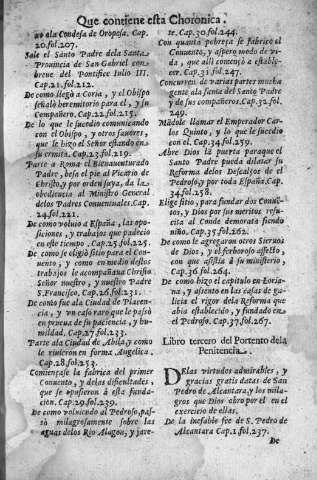 Que contiene esta Choronica.
no ala Condesa de Oropesa. Cap.
20. fol. 207.
Sale el Santo Padre dela Santa
Prouincia de San Gabriel con
breue del Pontifice Iulio III.
Cap. 21. fol. 212.
De como llegò a Coria, y el Obispo
señalò heremitorio para el, y su
Compañero. Cap. 22. fol. 215.
De lo que le sucedio comunicando
con el Obispo, y otros fauores,
que le hizo el Señor estando en
su ermita. Cap. 23. fol. 219.
Parte a Roma el Bienauenturado
Padre, besa el pie al Vicario de
Christo, y por orden suya, da la
obediencia al Ministro General
delos Padres Conuentuales. Cap.
24. fol. 221.
De como voluio a España, las opo-
siciones, y trabajos que padecio
en este tiempo. Cap. 25. fol. 225.
De como se eligiò sitio para el Con-
uento, y como en medio destos
trabajos le acompañaua Christo
Señor nuestro, y nuestro Padre
S. Francisco. Cap. 26. fol. 231.
De como fue ala Ciudad de Placen-
cia, y vn caso raro que le pasò
en prueua de su paciencia, y hu-
mildad. Cap. 27. fol. 233.
Parte ala Ciudad de Abila, y como
le vieron en forma Angelica.
Cap. 28. fol. 253.
Comiençase la fabrica del primer
Conuento, y delas dificultades,
que se opusieron à esta funda-
cion. Cap. 29. fol. 239.
De como voluiendo al Pedroso, pas-
sò milagrosamente sobre las
aguas delos Rio Alagon, y jare-
te. Cap. 30. fol. 244.
Con quanta pobreza se fabricò el
Conuento, y aspero modo de vi-
da, que alli començò a estable-
cer. Cap. 31. fol. 247.
Concurren de varias partes mucha
gente ala fama del Santo Padre
y de sus compañeros. Cap. 32. fol.
249.
Màdole llamar el Emperador Car-
los Quinto, y lo que le sucedio
con el. Cap. 34. fol. 259.
Abre Dios la puerta paraque el
Santo Padre pueda dilatar su
Reforma delos Descalços de el
Pedroso, y por toda España. Cap.
34. fol. 258.
Elige sitio, para fundar dos Conuē-
tos, y Dios por sus meritos resu-
cita al Conde demorata siendo
niño. Cap. 35. fol. 262.
De como le agregaron otros Sieruos
de Dios, y el feruoroso affecto,
con que assistia à su ministerio
Cap. 36. fol. 264.
De como hizo el capitulo en Loria-
na, y assiento en las casas de ga-
licia el rigor dela Reforma que
abia establecido, y fundado en
el Pedroso. Cap. 37. fol. 267.
Libro tercero del Portento dela
Penitencia.
DElas virtudes admirables, y
gracias gratis datas de San
Pedro de Alcantara, y los mila-
gros que Dios obro por el en el
exercicio de ellas.
De la inefable fee de S. Pedro de
Alcantara Cap. 1. fol. 237.
De